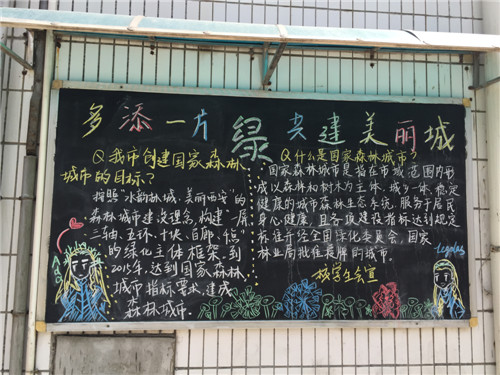 多添一片绿 共建美丽城
Q我市创建国家森林
城市的目标?
按照"水韵林城,美丽西安"的
森林城市建设理念,构建"一屏、
三轴、五环、十块、百廊、
的绿化主体框架,到
2015年,达到国家森林
城市指标要求,建成
森林城市.
Q什么是国家森林城市?
国家森林城市是指在市域范围内形
成以森林和树木为主体,城乡一体、稳定
健康的城市森林生态系统,服务于居民
身心健康,且各项建设指标达到规定
标准并经全国绿化委员会,国家
林业局批准授牌的城市.
校学生会宣